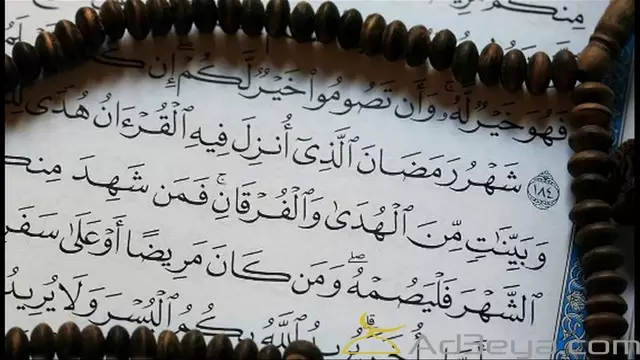 مِنكُم
فَهُوَ خَيْرٌ لَّهُۥ ۚ وَأَن تَصُومُوا۟ خَيْرٌ لَّكُمْ ۖ إِن
١٨٤ شَهْرُ رَمَضَانَ ٱلَّذِىٓ أُنزِلَ فِيهِ ٱلْقُرْءَانُ هُدًى
وَبَيِّنَٰتٍ مِّنَ ٱلْهُدَىٰ وَٱلْفُرْقَانِ ۚ فَمَن شَهِدَ
ٱلشَّهْرَ فَلْيَصُمْهُ ۖ وَمَن كَانَ مَرِيضًا أَوْ عَلَىٰ
ٱللَّهُ بِكُمُ ٱلْيُسْرَ وَلَا يُرِيدُ
ArBeya.com